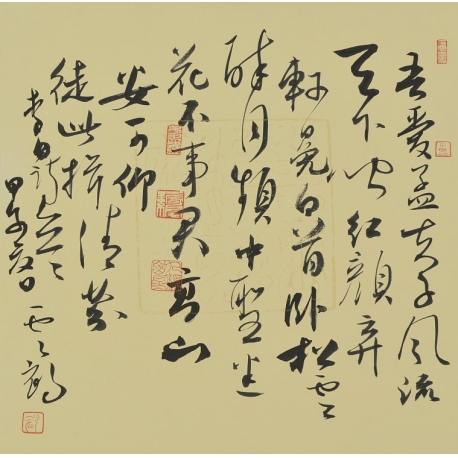 吾爱孟夫子风流
天下闻红颜弃
轩冕白首卧松云
醉月频中聖迷
花不事君高山
安可仰
徒此揖清芬
李白诗
甲午夏日 云鹤